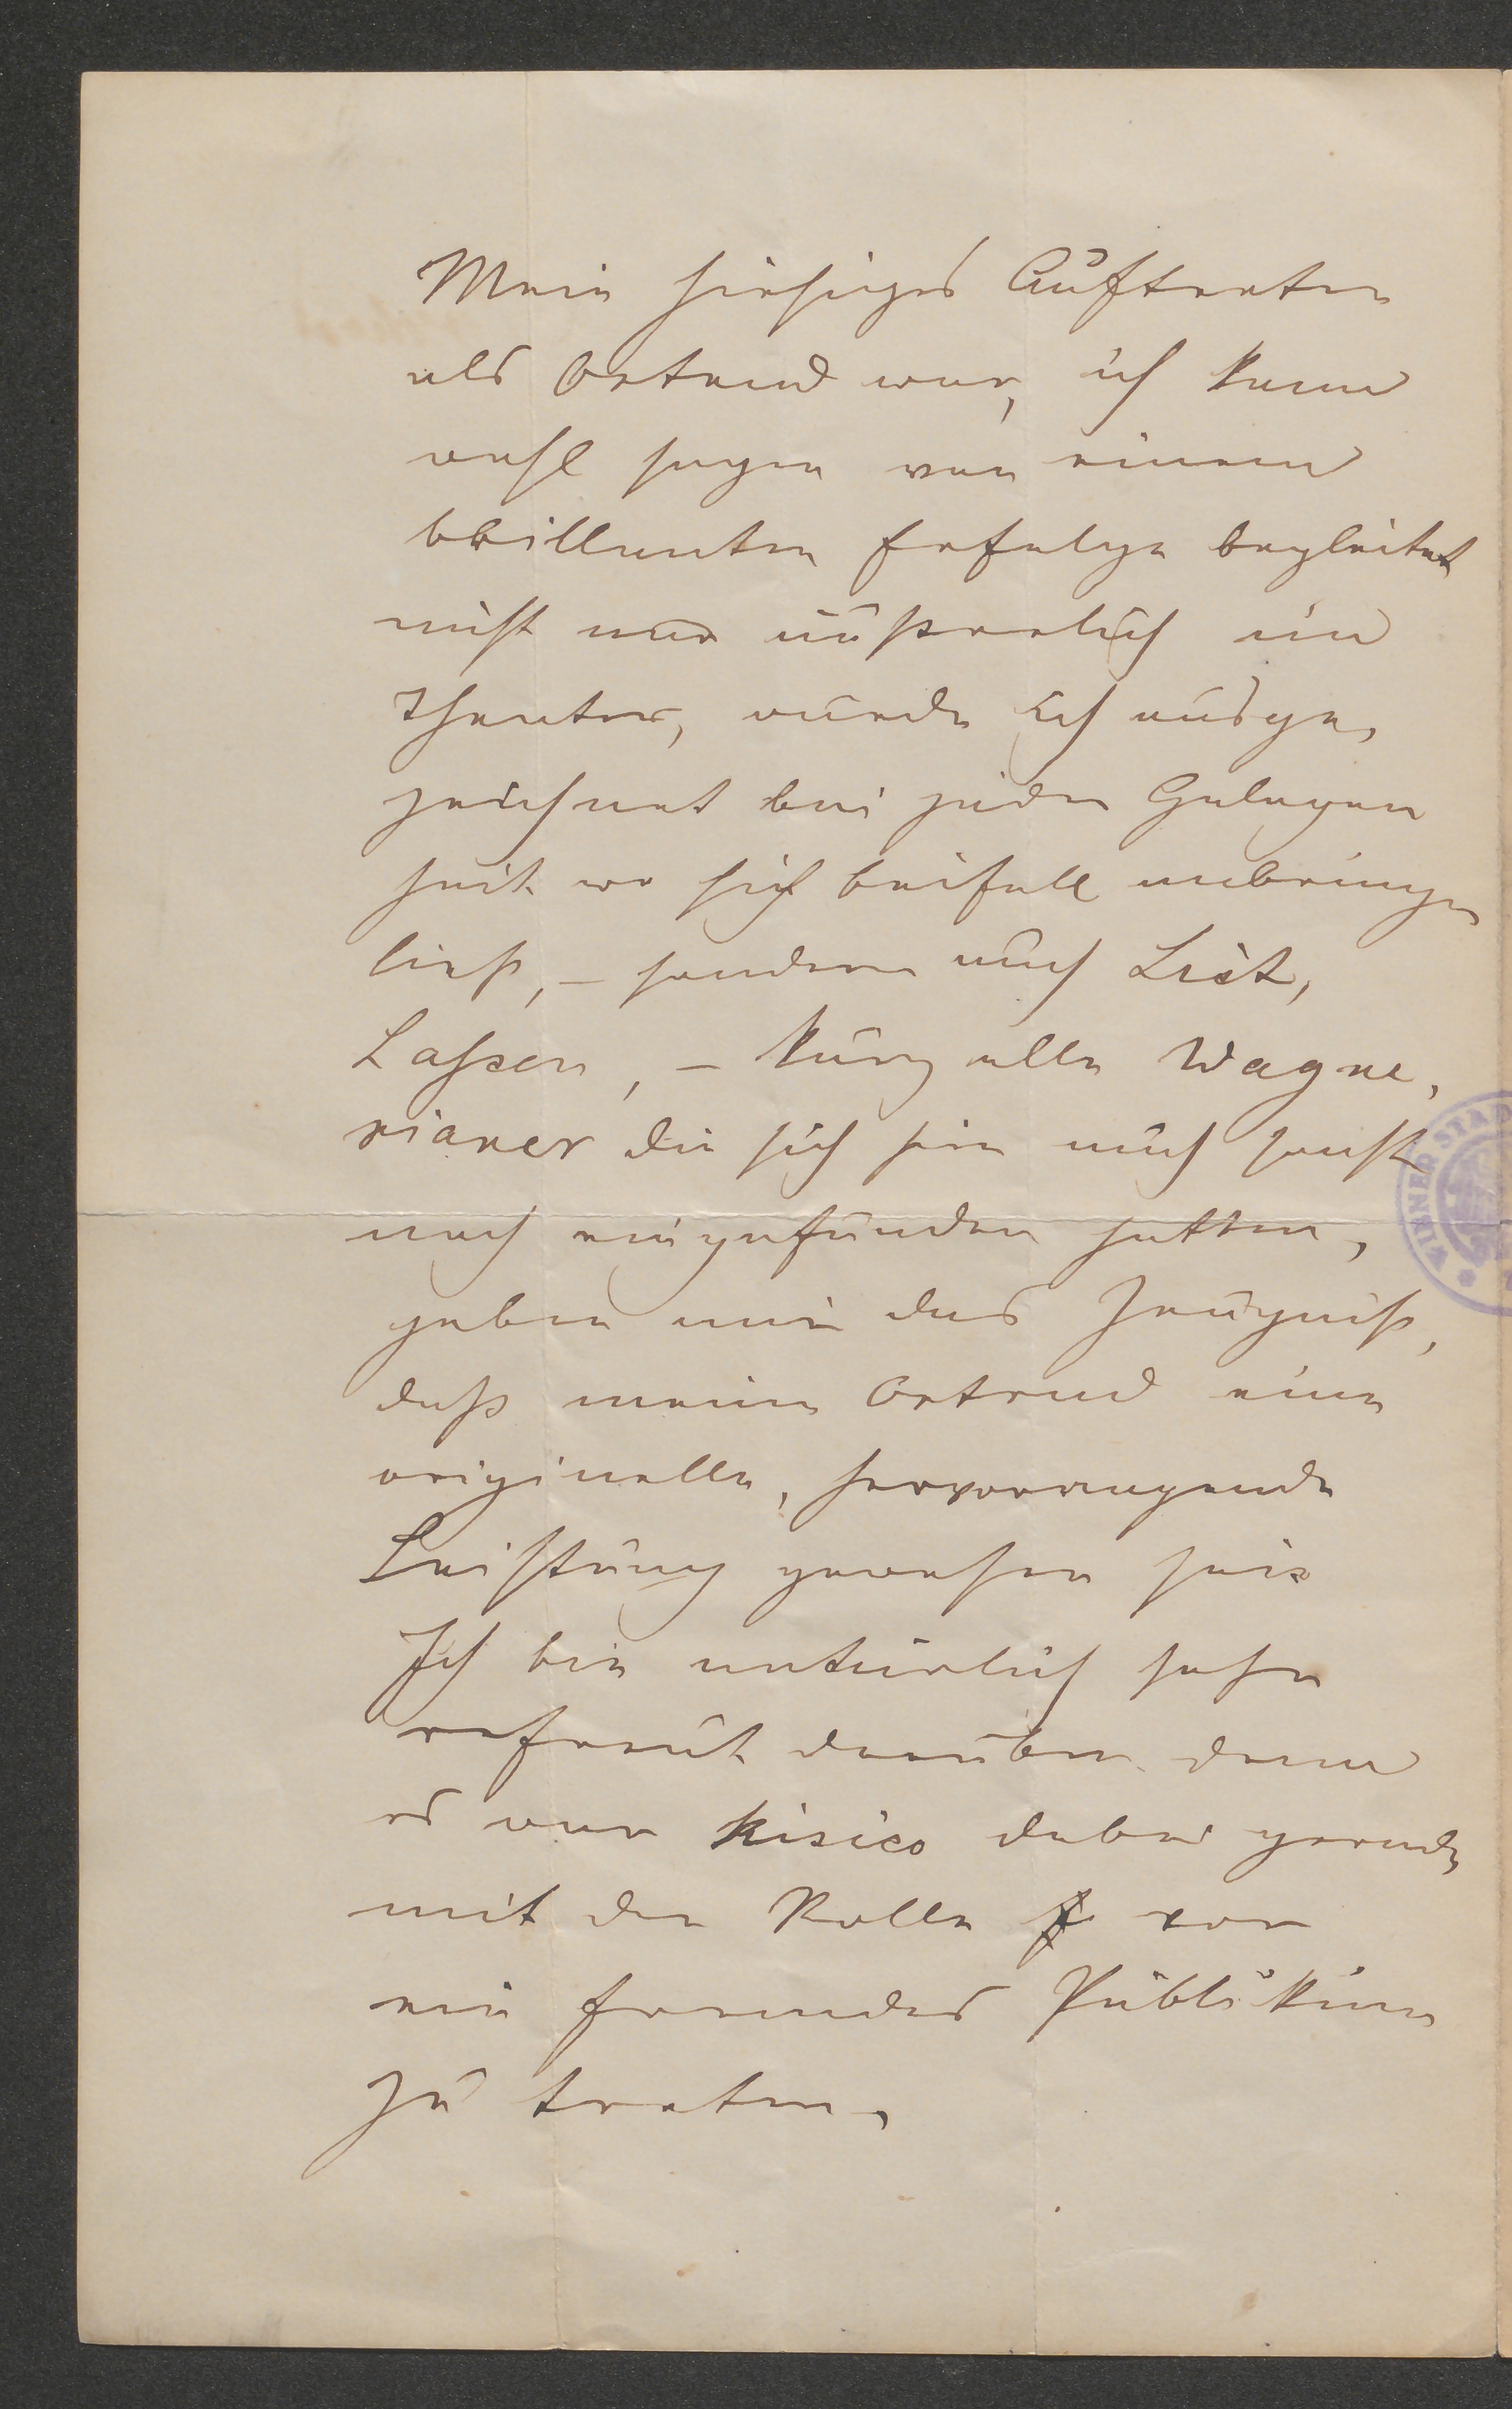 Mein hiesiges Auftreten
als Ortrud war, ich kann
wohl sagen von einem
brillanten Erfolge begleitet
nicht nur äußerlich im
Theater, wurde ich ausge,
zeichnet bei jeder Gelegen
heit wo sich beifall anbringen
ließ, – sondern auch List,
Laßsen, – kurz alle Wagne,
rianer die sich hier auch sonst
noch eingefunden hatten,
geben mir das Zeugniß,
daß meine Ortrud eine
originelle, hervorragende
Leistung gewesen sei.
Ich bin natürlich sehr
erfreut darüber denn
es war Risico dabei gerade
mit der Rolle vor
ein fremdes Publikum
zu treten.
WIENER STAD